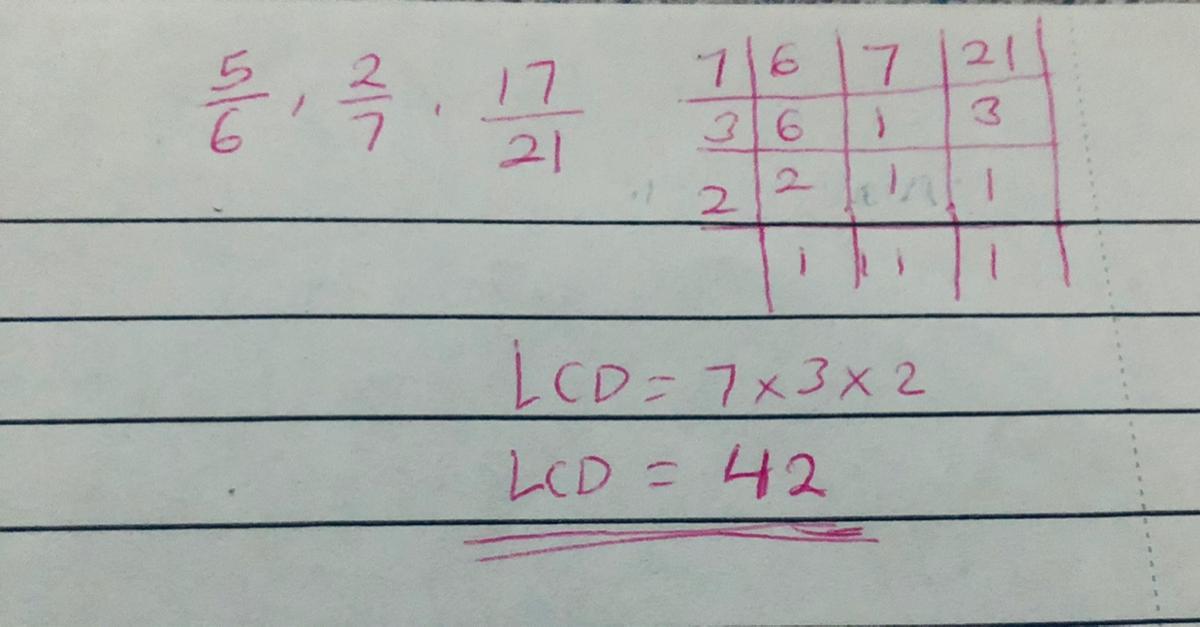 5/6, 2/7, 17/21
7 | 6 | 7 | 21 |
3 | 6 | 1 | 3
2 | 2 | 1 | 1
| 1 | 1 | 1 |
LCD = 7 x 3 x 2
LCD = 42